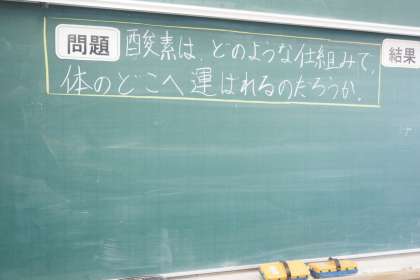 問題 酸素は、どのような仕組みで、
体のどこへ運ばれるのだろうか。
結果